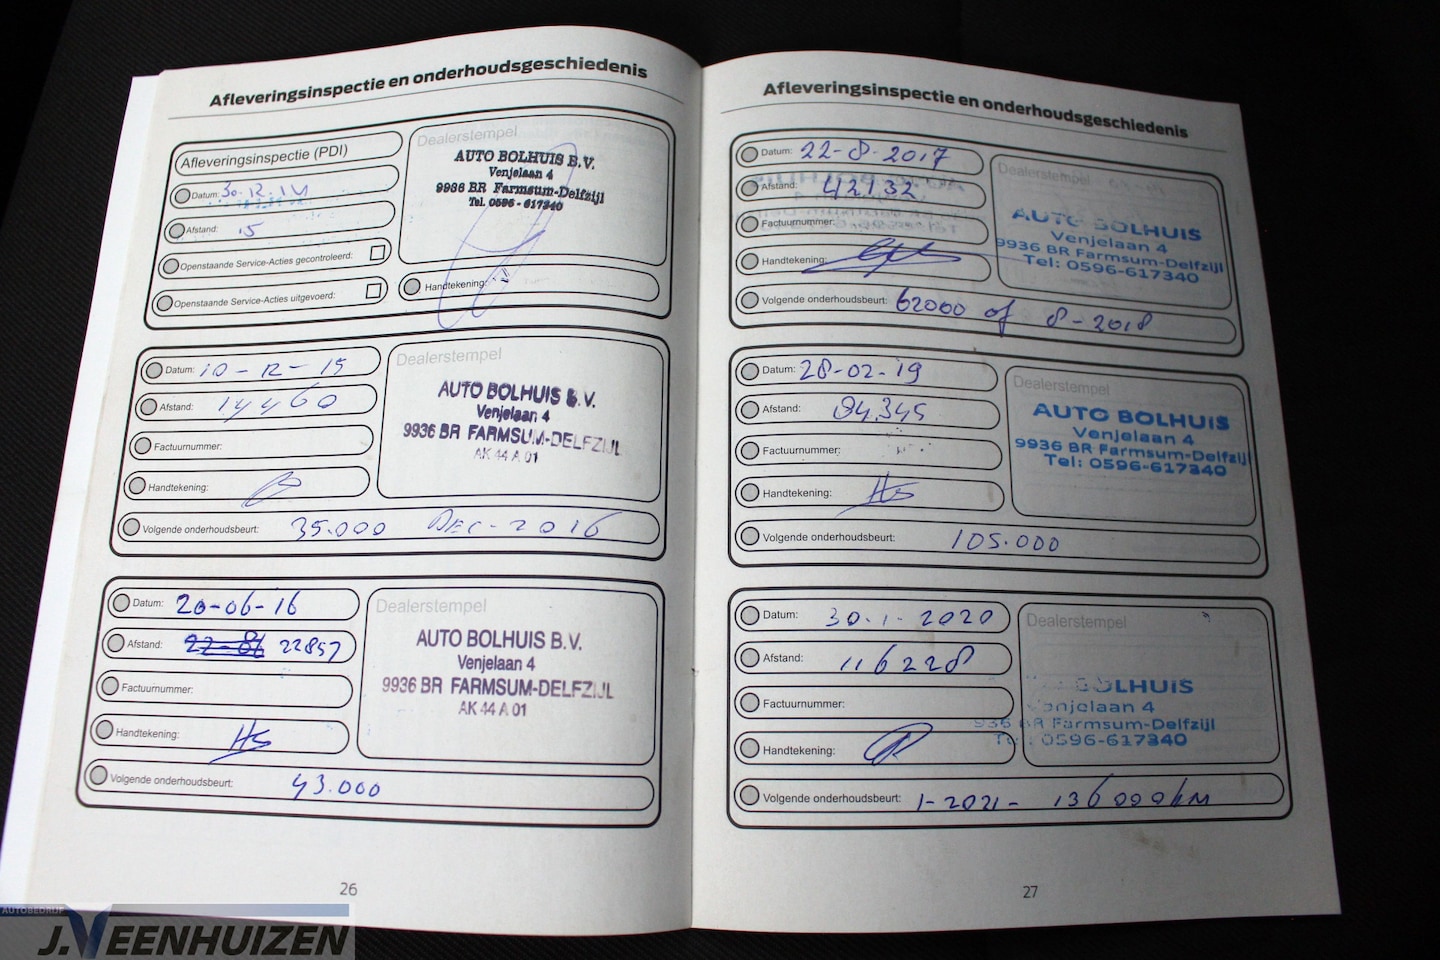 Afleveringsinspectie en onderhoudsgeschiedenis
Afleveringsinspectie (PDI)
Datum: 30.12.14
Afstand: 15
Openstaande Service-Acties gecontroleerd:
Openstaande Service-Acties uitgevoerd:
Dealerstempel
AUTO BOLHUIS B.V.
Venjelaan 4
9936 BR Farmsum-Delfzijl
Tel. 0596 - 617340
Handtekening:
Datum: 10-12-15
Afstand: 14460
Factuurnummer:
Handtekening:
Dealerstempel
AUTO BOLHUIS B.V.
Venjelaan 4
9936 BR FARMSUM-DELFZIJL
AK 44 A 01
Volgende onderhoudsbeurt: 35.000 DEC-2016
Datum: 20-06-16
Afstand: 22-06 22857
Factuurnummer:
Handtekening: HS
Dealerstempel
AUTO BOLHUIS B.V.
Venjelaan 4
9936 BR FARMSUM-DELFZIJL
AK 44 A 01
Volgende onderhoudsbeurt: 43.000
26
Afleveringsinspectie en onderhoudsgeschiedenis
Datum: 22-8-2017
Afstand: 42132
Factuurnummer:
Handtekening:
Dealerstempel
AUTO BOLHUIS
Venjelaan 4
9936 BR Farmsum-Delfzijl
Tel: 0596-617340
Volgende onderhoudsbeurt: 62000 of 8-2018
Datum: 28-02-19
Afstand: 94.345
Factuurnummer:
Handtekening: HS
Dealerstempel
AUTO BOLHUIS
Venjelaan 4
9936 BR Farmsum-Delfzijl
Tel: 0596-617340
Volgende onderhoudsbeurt: 105.000
Datum: 30-1-2020
Afstand: 116228
Factuurnummer:
Handtekening:
Dealerstempel
BOLHUIS
Venjelaan 4
936 BR Farmsum-Delfzijl
Te: 0596-617340
Volgende onderhoudsbeurt: 1-2021- 136000km
27
AUTOBEDRIJF
J.VEENHUIZEN